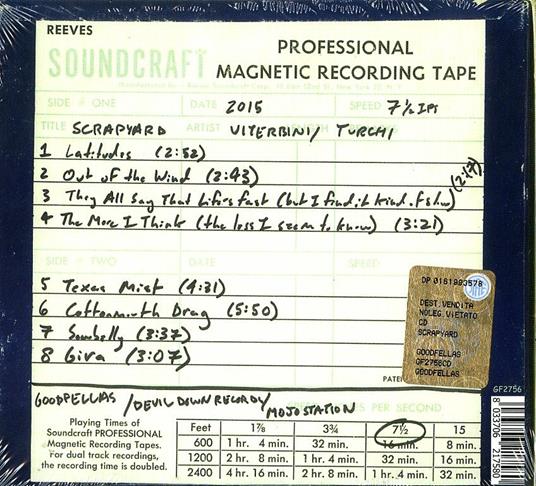 REEVES
SOUNDCRAFT
PROFESSIONAL
MAGNETIC RECORDING TAPE
SIDE # ONE DATE 2015 SPEED 7½ IPS
TITLE SCRAPYARD ARTIST VITERBINI/ TURCHI
1 Latitudes (2:52)
2 Out of the Wind (2:43)
3 They All Say That Life's Fast (but I find it kind of slow) (2:17)
4 The More I Think (the less I seem to know) (3:21)
SIDE # TWO DATE SPEED
5 Texas Mist (4:31)
6 Cottonmouth Drag (5:50)
7 Sowbelly (3:37)
8 Giva (3:07)
DP 0161993578
DEST.VENDITA
NOLEG.VIETATO
CD
SCRAPYARD
GOODFELLAS
GF2756CD
GOODFELLAS
PATE
GF2756
8 033706 217580
GOODFELLAS /DEVIL DOWN RECORDS/ MOJO STATION
PER SECOND
Playing Times of
Soundcraft PROFESSIONAL
Magnetic Recording Tapes.
For dual track recordings,
the recording time is doubled.
Feet 1⅞ 3¾ 7½ 15
600 1 hr. 4 min. 32 min. 16 min. 8 min.
1200 2 hr. 8 min. 1 hr. 4 min. 32 min. 16 min.
2400 4 hr. 16 min. 2 hr. 8 min. 1 hr. 4 min. 32 min.